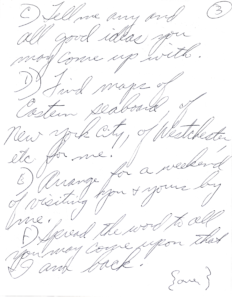 3
C) Tell me any and
all good ideas you
may come up with.
D) Find maps of
Eastern seaboard, of
New York City, of Westchester
etc for me.
E) Arrange for a weekend
of visiting you & yours by
me.
F) Spread the word to all
you may come upon that
I am back.
{over}